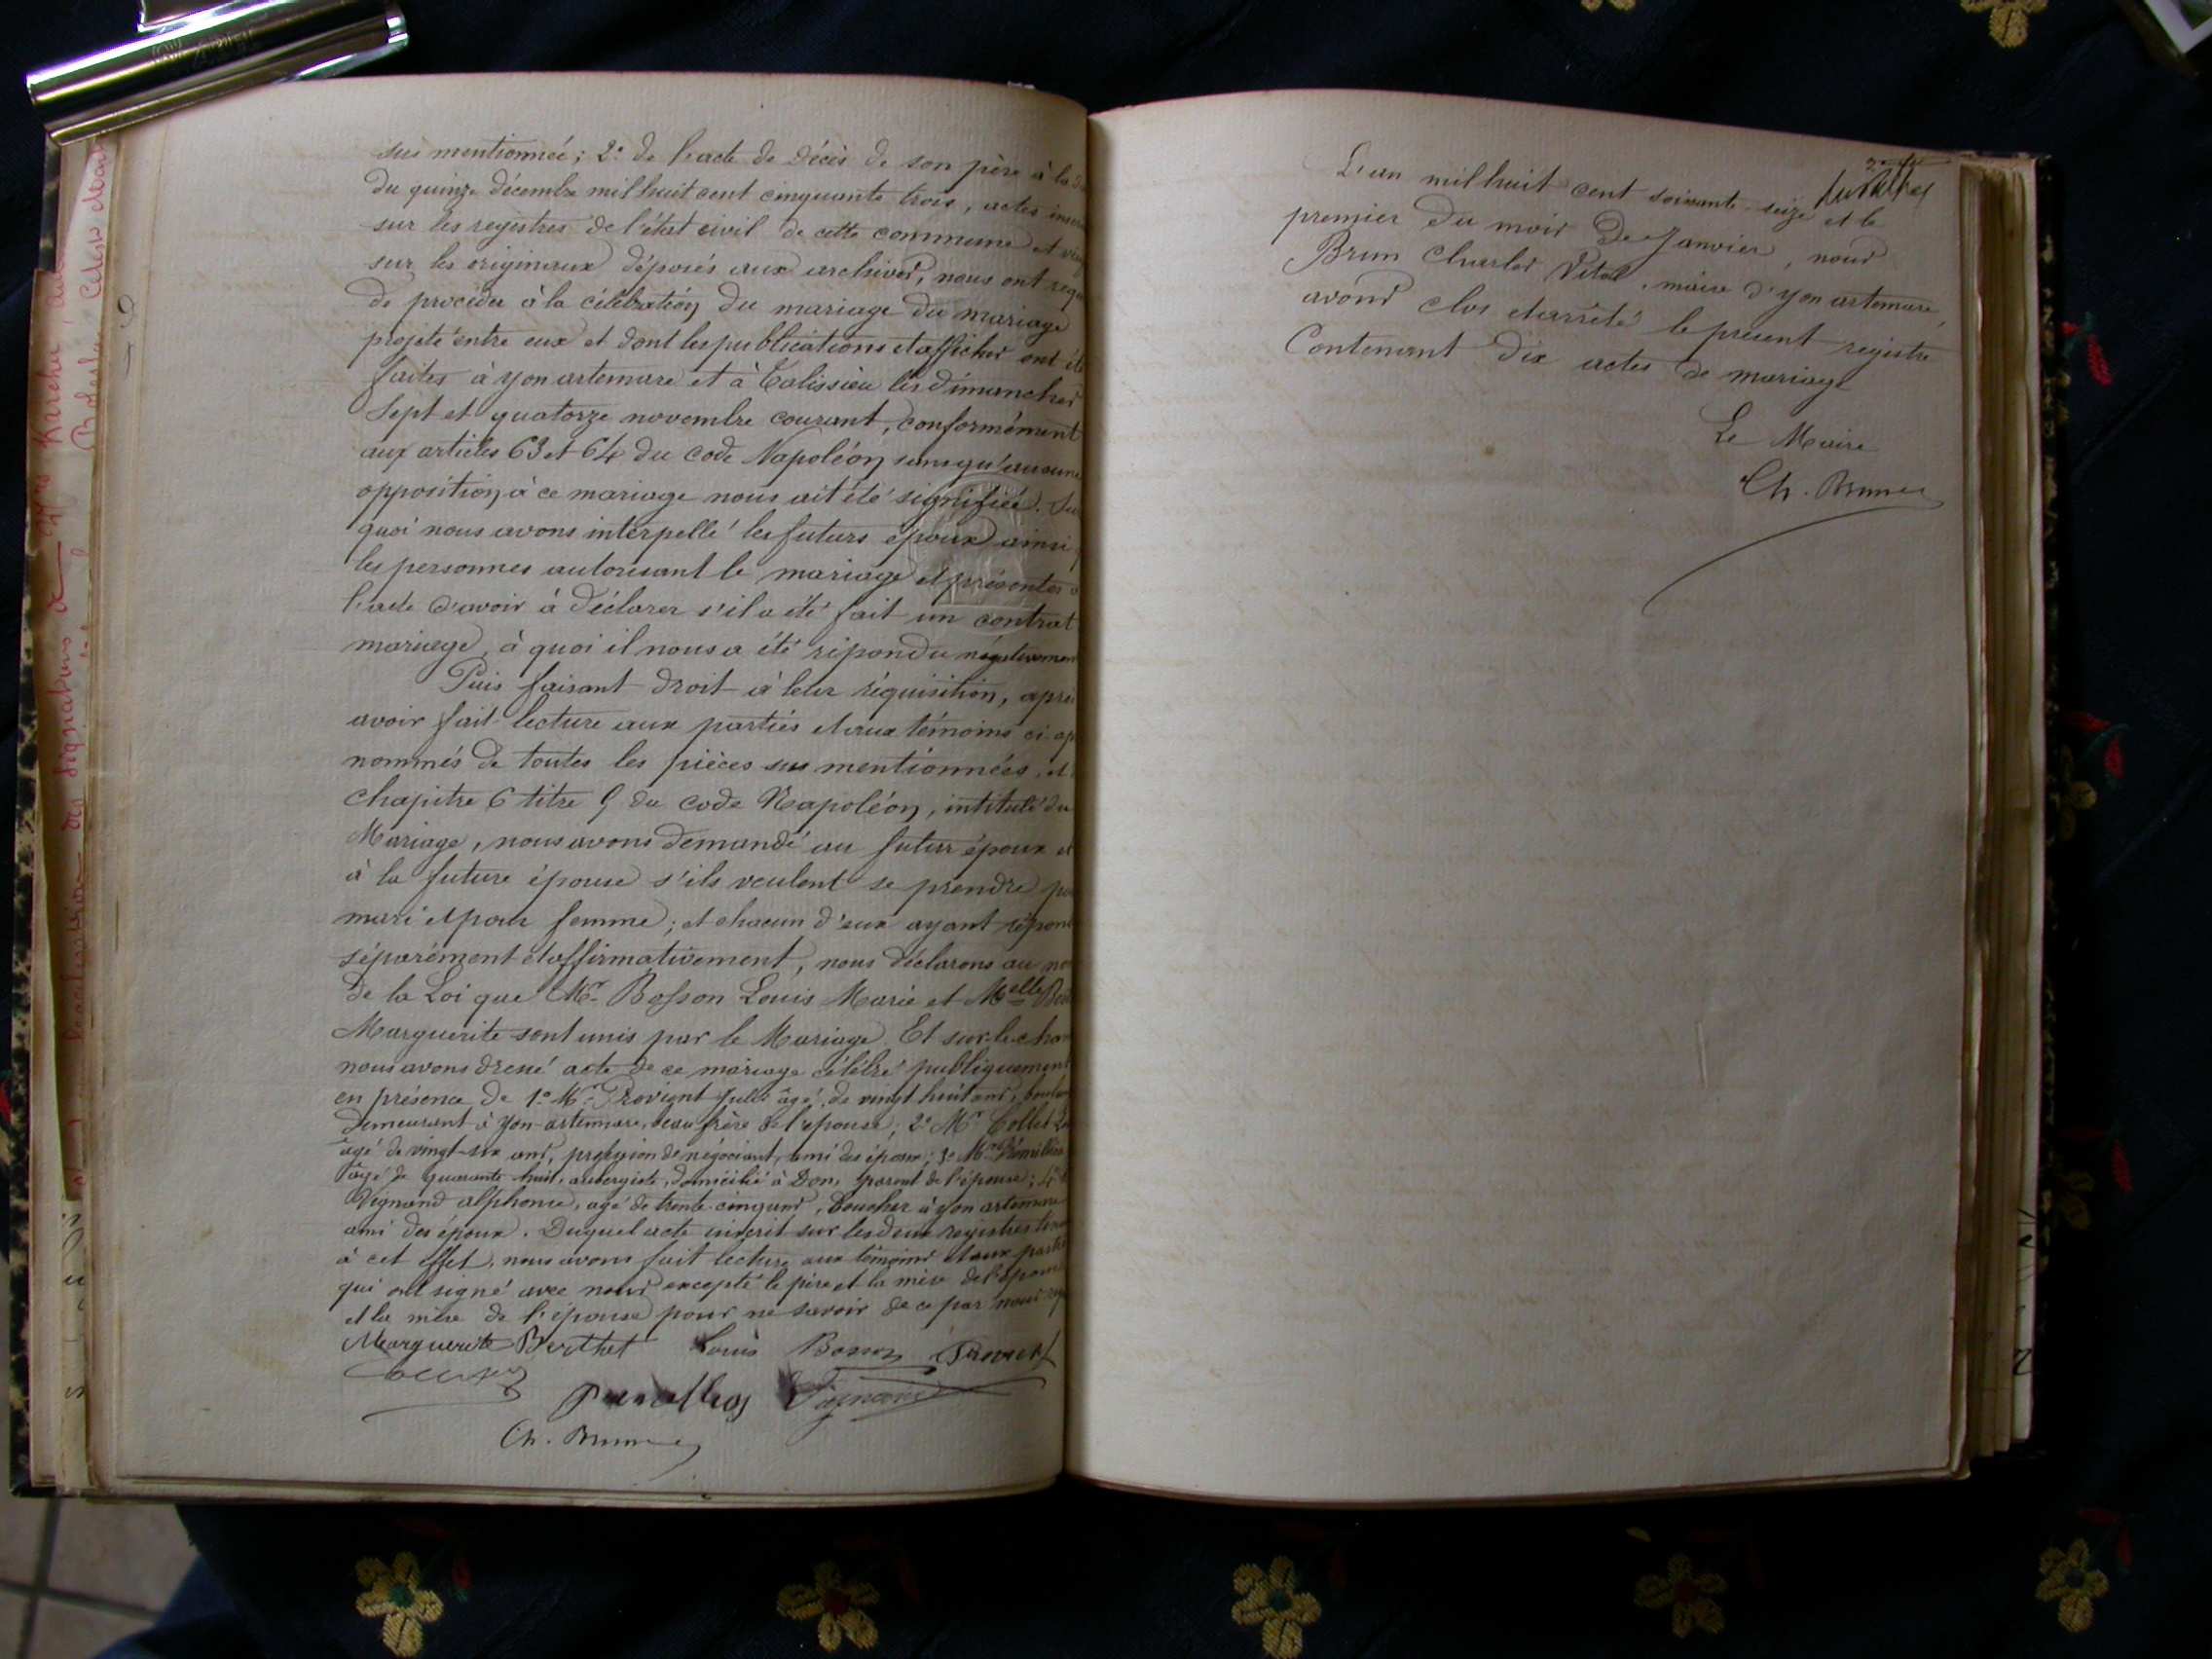 sus mentionnée; 2° de l'acte de décès de son père à la
du quinze décembre mil huit cent cinquante trois, actes
sur les registres de l'état civil de cette commune et
sur les originaux déposés aux archives, nous ont
de procéder à la célébration du mariage du mariage
projeté entre eux et dont les publications et affiches ont été
faites à yon artemare et à Talissieu les dimanches
sept et quatorze novembre courant, conformément
aux articles 63 et 64 du code Napoléon sans qu'aucune
opposition à ce mariage nous ait été signifiée. Sur
quoi nous avons interpellé les futurs époux ainsi
les personnes autorisant le mariage et présentes à
l'acte d'avoir à déclarer s'il a été fait un contrat
mariage, à quoi il nous a été répondu négativement
Puis faisant droit à leur réquisition, après
avoir fait lecture aux parties et aux témoins ci-ap
nommés de toutes les pièces sus mentionnées, et
chapitre 6 titre 5 du code Napoléon, intitulé du
Mariage, nous avons demandé au futur époux et
à la future épouse s'ils veulent se prendre
mari et pour femme; et chacun d'eux ayant répon
séparément et affirmativement, nous déclarons au
de la Loi que Mr. Bosson Louis Marie et Melle
Marguerite sont unis par le Mariage. Et sur-le-cha
nous avons dressé acte de ce mariage célébré publiquement
en présence de 1° Mr. Provignt Jules âgé de vingt huit ans,
demeurant à yon-artemare, beau frère de l'épouse; 2° Mr Collet
âgé de vingt-six ans, profession de négociant, ami des époux; 3° Mr
âgé de quarante huit, aubergiste, domicilié à Don, parent de l'épouse; 4°
Vignand alphonse, agé de trente cinq ans, Boucher à yon artemare
ami des époux. Duquel acte inscrit sur les deux registres
à cet effet, nous avons fait lecture aux témoins et aux parties
qui ont signé avec nous excepté le père et la mère de l'époux
et la mère de l'épouse pour ne savoir de ce par nous
Marguerite Berthet Louis Bosson
Vignand
Ch. Brun
L'an mil huit cent soixante-seize et le
premier du mois de Janvier, nous
Brun Charles Vital, maire d'yon artemare,
avons clos et arrêté le présent registre
Contenant dix actes de mariage
Le Maire
Ch. Brun